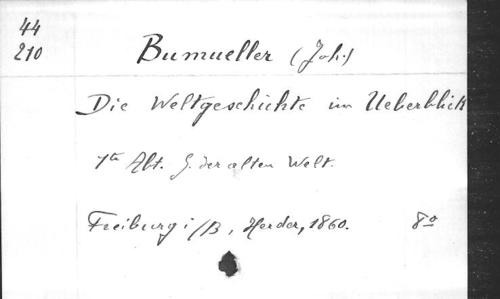 44
210
Bumueller (Joh.)
Die Weltgeschichte im Ueberblick
1te Abt. G. der alten Welt.
Freiburg i/B, Herder, 1860. 8o